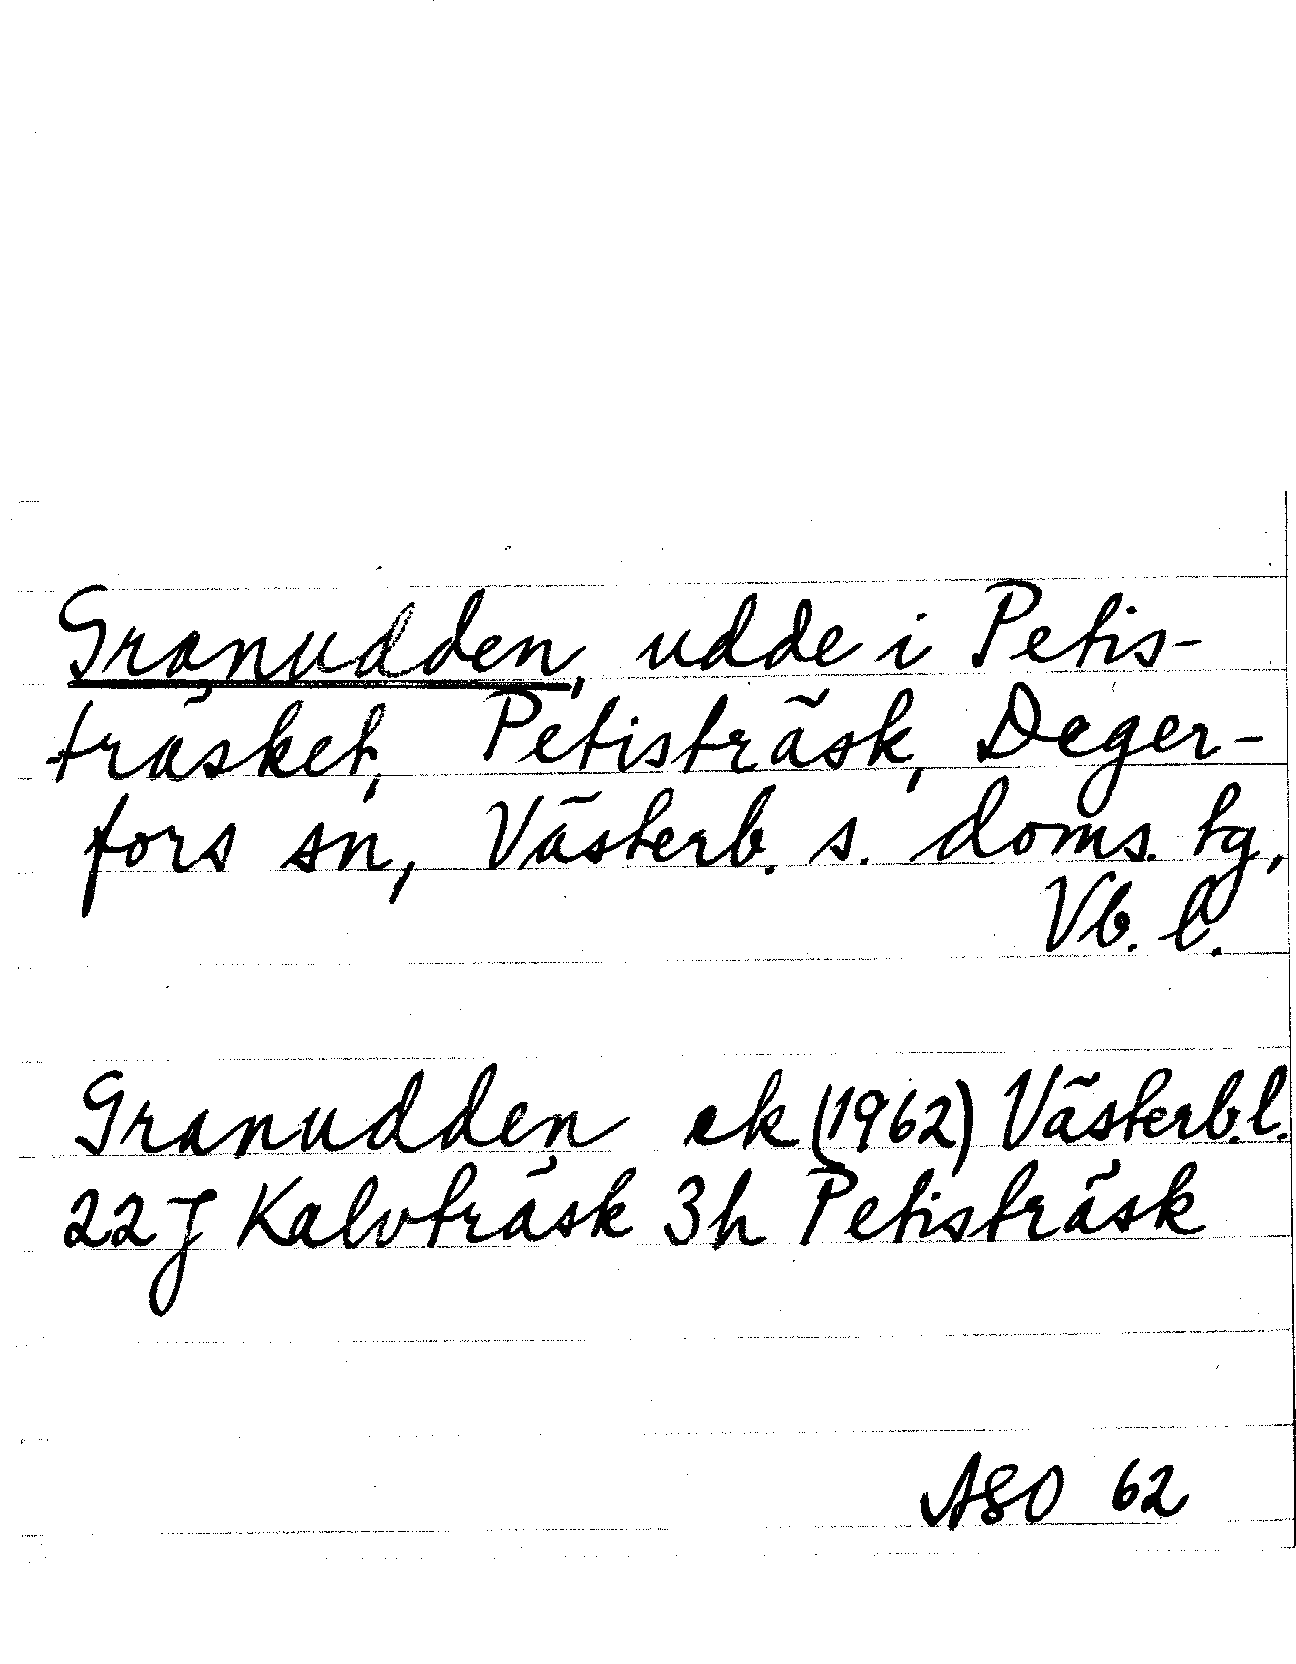 Granudden, udde i Petis-
träsket, Petisträsk, Deger-
fors sn, Västerb. s. doms. tg,
Vb. l.
Granudden ek (1962) Västerb.l.
22 J Kalvträsk 3h Petisträsk
ASO 62